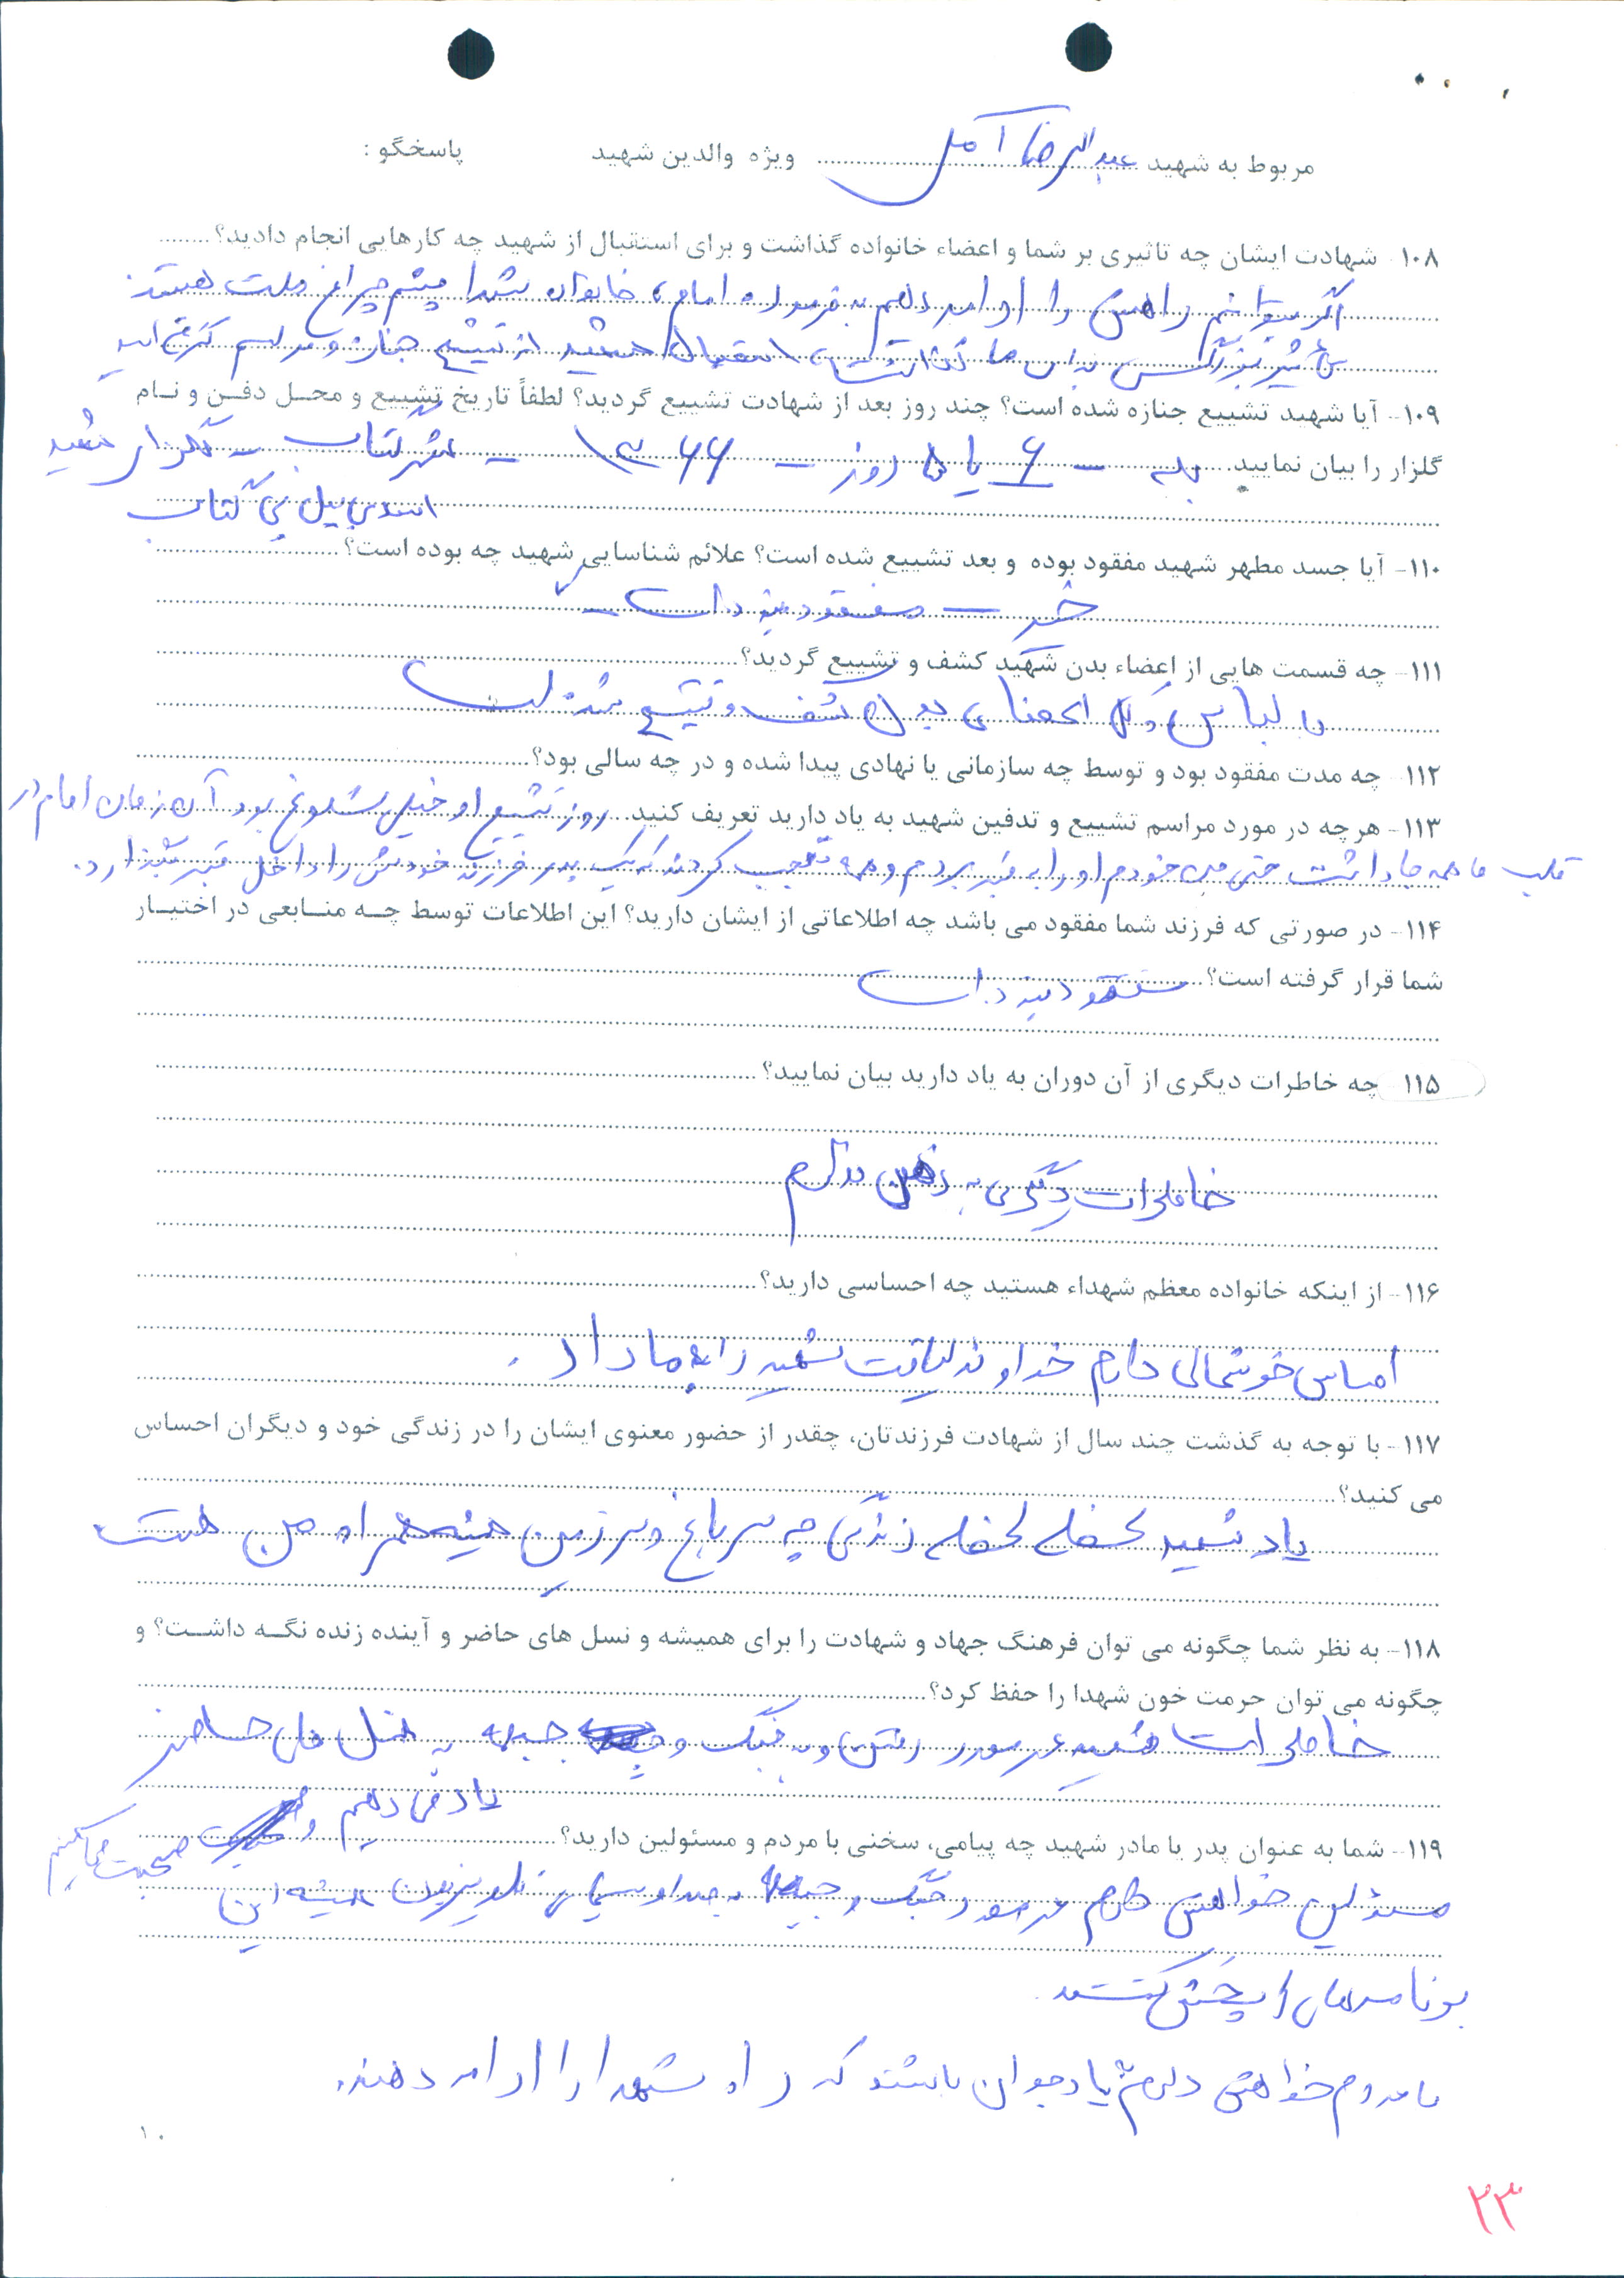 مربوط به شهید عبدالرضا آملی ویژه والدین شهید پاسخگو :
۱۰۸- شهادت ایشان چه تاثیری بر شما و اعضاء خانواده گذاشت و برای استقبال از شهید چه کارهایی انجام دادید؟
اگر بتوانیم راهش را ادامه دهیم به فرموده امام، خانواده شهدا چشم چراغ ملت هستند
تأثیر بزرگی بر ما گذاشت، استقبال شهید از تشییع جنازه و مراسم گرفته‌ایم
۱۰۹- آیا شهید تشییع جنازه شده است؟ چند روز بعد از شهادت تشییع گردید؟ لطفاً تاریخ تشییع و محل دفن و نام
گلزار را بیان نمایید. بله - ۶ یا ۵ روز - ۱۳۶۶ - شهر گتاب - گلزار شهید
گتاب
۱۱۰- آیا جسد مطهر شهید مفقود بوده و بعد تشییع شده است؟ علائم شناسایی شهید چه بوده است؟
خیر - مفقود نبوده است -
۱۱۱- چه قسمت هایی از اعضاء بدن شهید کشف و تشییع گردید؟
با لباس و کل اعضای بدن کشف و تشییع شده است
۱۱۲- چه مدت مفقود بود و توسط چه سازمانی یا نهادی پیدا شده و در چه سالی بود؟
۱۱۳- هرچه در مورد مراسم تشییع و تدفین شهید به یاد دارید تعریف کنید. روز تشییع او خیلی شلوغ بود آن زمان امام در
قلب ما همه جا داشت حتی من خودم او را به قبر بردم و همه تعجب کردند که یک پدر فرزند خودش را داخل قبر بگذارد.
۱۱۴- در صورتی که فرزند شما مفقود می باشد چه اطلاعاتی از ایشان دارید؟ این اطلاعات توسط چه منابعی در اختیار
شما قرار گرفته است؟ مفقود نبوده است
۱۱۵- چه خاطرات دیگری از آن دوران به یاد دارید بیان نمایید؟
خاطرات دیگری به ذهن ندارم
۱۱۶- از اینکه خانواده معظم شهداء هستید چه احساسی دارید؟
احساس خوشحالی دارم خداوند لیاقت شهید را به ما داد.
۱۱۷- با توجه به گذشت چند سال از شهادت فرزندتان، چقدر از حضور معنوی ایشان را در زندگی خود و دیگران احساس
می کنید؟
یاد شهید لحظه لحظه زندگی چه سر باغ و سر زمین همیشه همراه من هست
۱۱۸- به نظر شما چگونه می توان فرهنگ جهاد و شهادت را برای همیشه و نسل های حاضر و آینده زنده نگه داشت؟ و
چگونه می توان حرمت خون شهدا را حفظ کرد؟
خاطرات شهید در مورد رفتن به جنگ و جبهه به نسل های حاضر
یاد می دهیم و صحبت می کنیم
۱۱۹- شما به عنوان پدر یا مادر شهید چه پیامی، سخنی با مردم و مسئولین دارید؟
مسئولین خواهش دارم در مورد جنگ و جبهه به صدا و سیما و تلویزیون همیشه این
برنامه‌های را پخش کنند.
با مردم خواهش دارم یاد جوان باشند که راه شهدا را ادامه دهند.
۱۰
۲۳